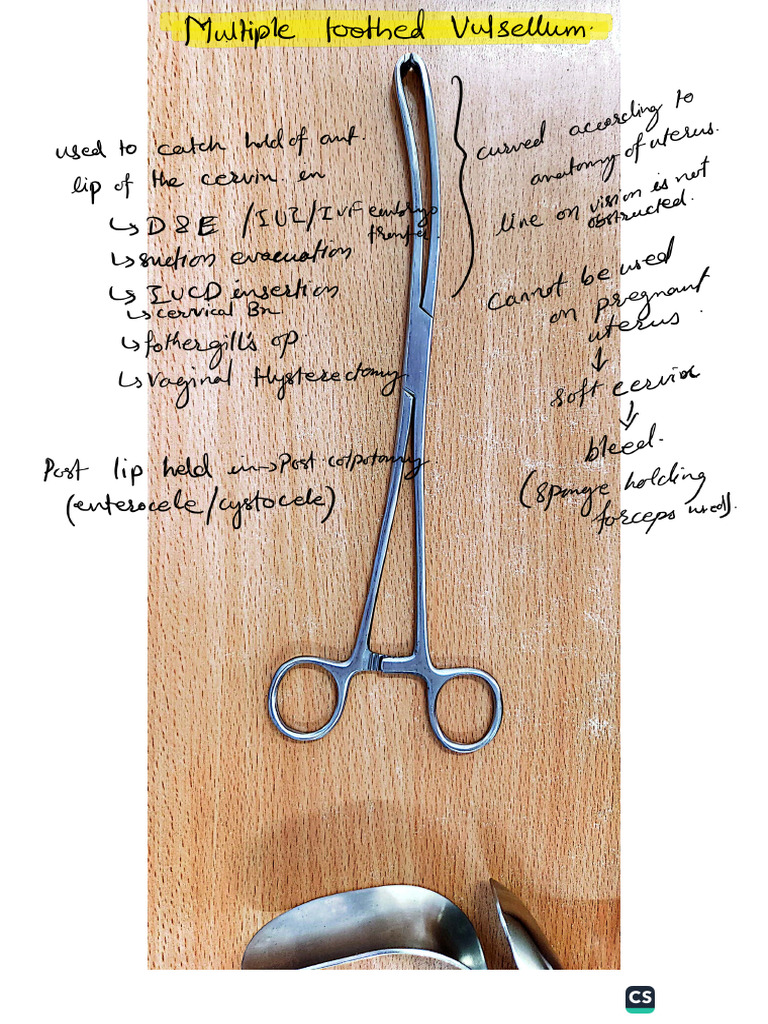 Multiple toothed Vulsellum.
used to catch hold of ant.
lip of the cervix. in
↳ D & E / IUI / IVF embryo
transfer.
↳ suction evacuation
↳ IUCD insertion
↳ cervical Bx
↳ fothergill's op
↳ Vaginal Hysterectomy
Post lip held in → Post colpotomy
(enterocele/cystocele)
curved according to
anatomy of uterus.
line on vision is not
obstructed.
Cannot be used
on pregnant
uterus.
↓
soft cervix
↓
bleed.
(sponge holding
forceps used).
CS